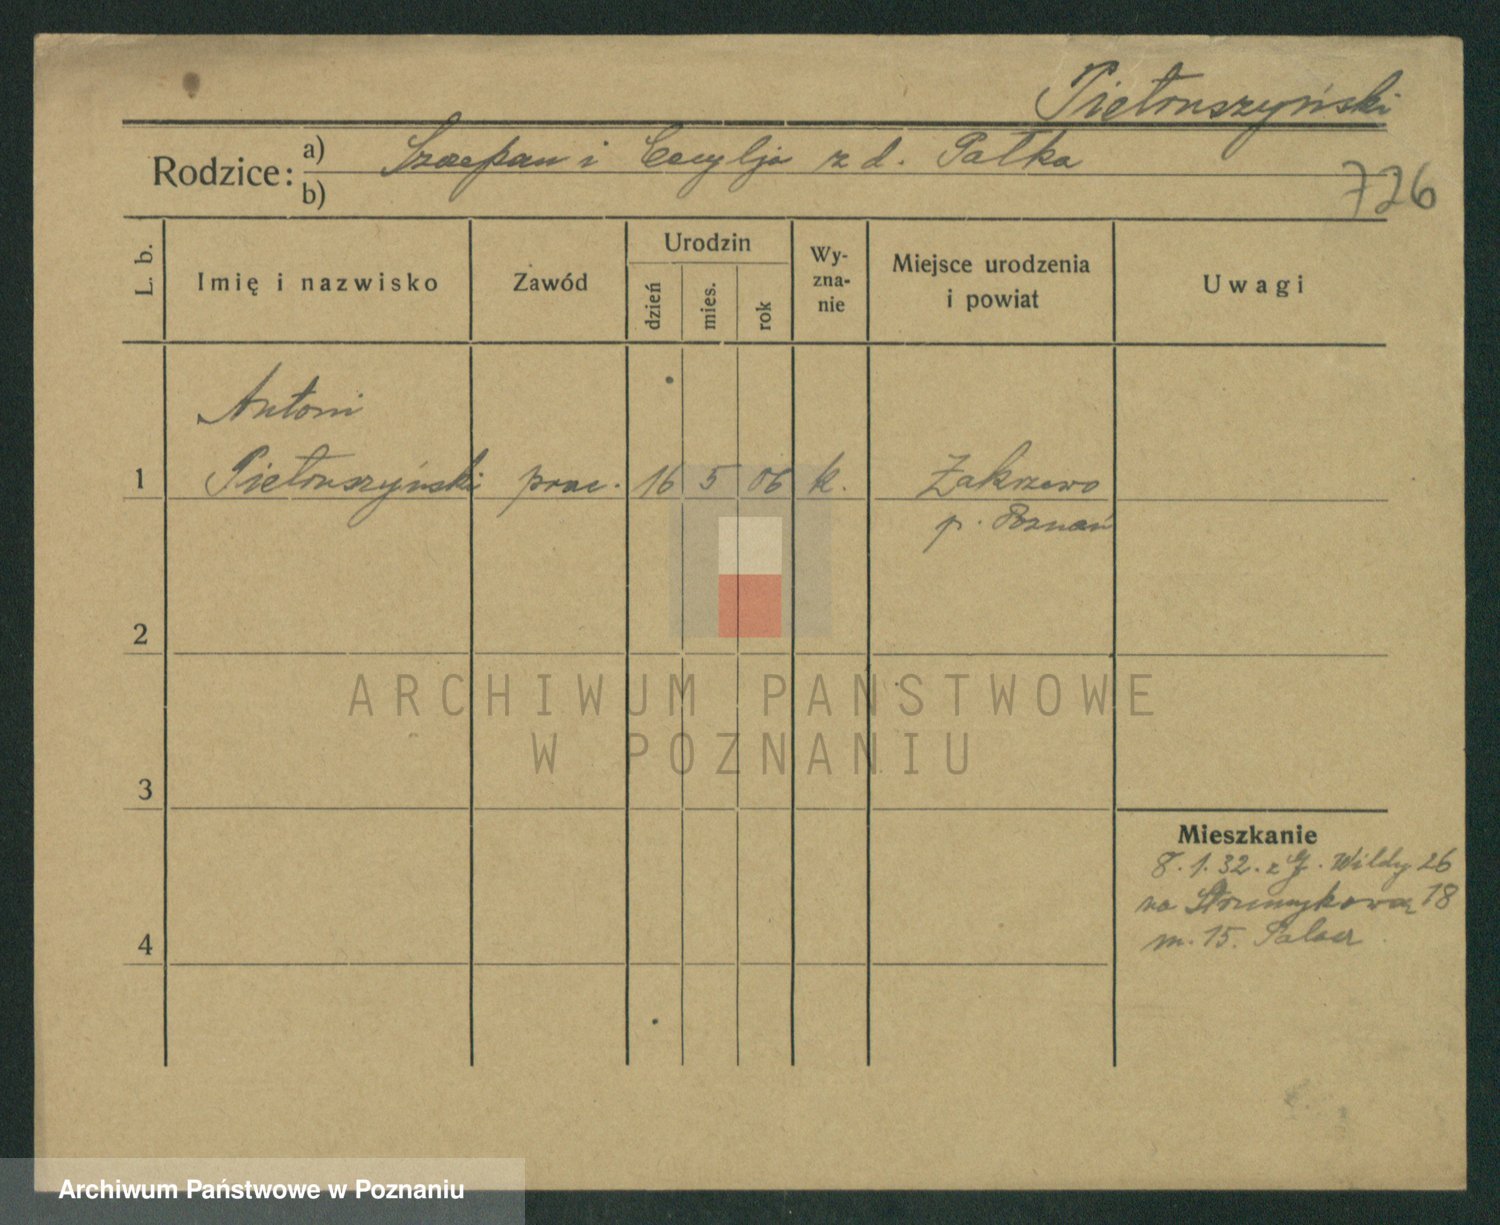 Pietruszyński
Rodzice: a) Szczepan i Cecylja z d. Pałka
b)
726
L. b.
Imię i nazwisko
Zawód
Urodzin
dzień
mies.
rok
Wy-
zna-
nie
Miejsce urodzenia
i powiat
Uwagi
Antoni
1 Pietruszyński prac. 16 5 06 k. Zakrzewo
p. Poznań
2
ARCHIWUM PAŃSTWOWE
W POZNANIU
3
Mieszkanie
8.1.32. z G. Wildy 26
na Strumykowa 18
m. 15.
4
Archiwum Państwowe w Poznaniu